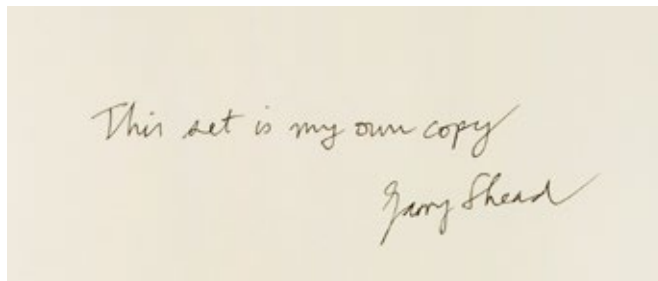 This set is my own copy
Garry Shead